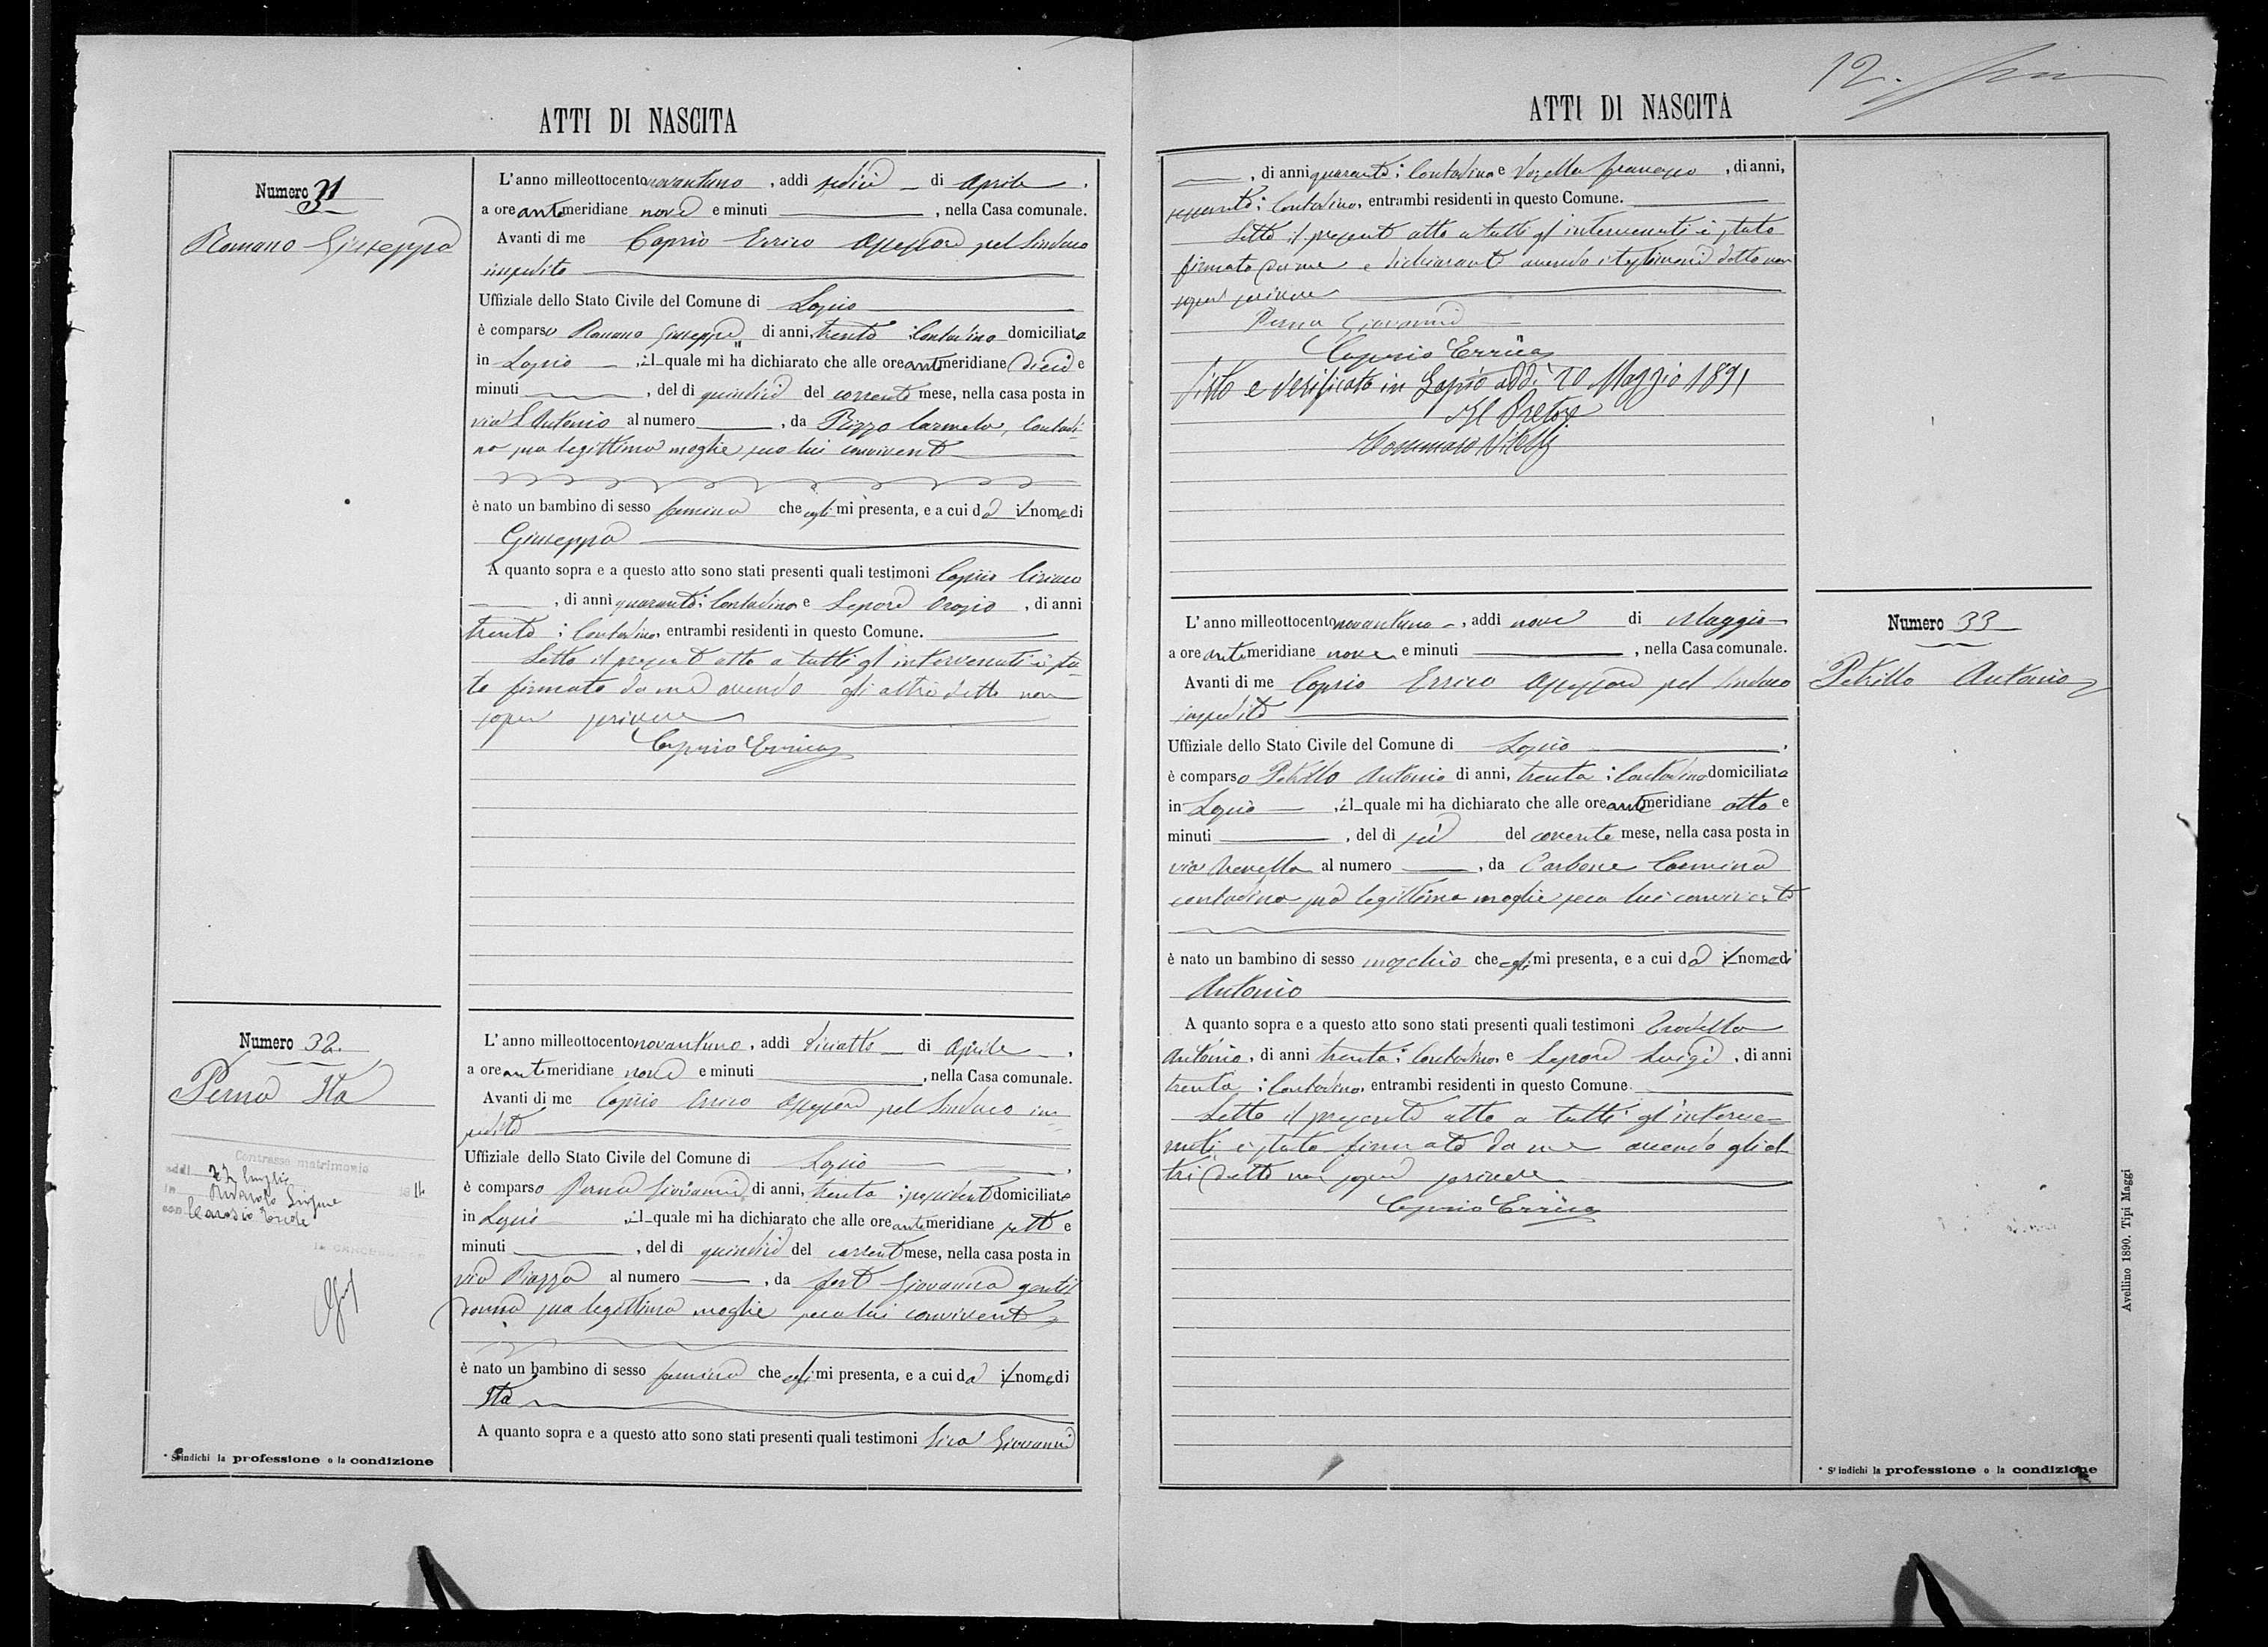 ATTI DI NASCITA
Numero 31
Romano Giuseppa
L'anno milleottocento novantuno, addì sedici di Aprile,
a ore antimeridiane nove e minuti , nella Casa comunale.
Avanti di me Caprio Errico Assessore pel Sindaco
impedito
Uffiziale dello Stato Civile del Comune di Lapio
è comparso Romano Giuseppe, di anni, trenta; Contadino domiciliato
in Lapio, il quale mi ha dichiarato che alle ore antimeridiane dieci e
minuti , del dì quindici del corrente mese, nella casa posta in
via S Antonio al numero , da Rizzo Carmela, Contadi-
na sua legittima moglie seco lui convivente
è nato un bambino di sesso femina che egli mi presenta, e a cui dà il nome di
Giuseppa
A quanto sopra e a questo atto sono stati presenti quali testimoni Caprio Ciriaco
, di anni quaranta; Contadino e Lepore Orazio, di anni
trenta; Contadino, entrambi residenti in questo Comune.
Letto il presente atto a tutti gl'intervenuti è sta-
to firmato da me avendo gli altri detto non
saper scrivere
Caprio Errico
Numero 32.
Perna Ita
Contrasse matrimonio
addì 27 Luglio
in Rivarolo Ligure
con
L'anno milleottocento novantuno, addì diciotto di Aprile,
a ore antimeridiane nove e minuti , nella Casa comunale.
Avanti di me Caprio Errico Assessore pel Sindaco im-
pedito
Uffiziale dello Stato Civile del Comune di Lapio,
è comparso Perna Giovanni, di anni, trenta; possidente domiciliato
in Lapio, il quale mi ha dichiarato che alle ore antimeridiane sette e
minuti , del dì quindici del corrente mese, nella casa posta in
via Piazza al numero , da Forte Giovanna gentil
donna sua legittima moglie seco lui convivente
è nato un bambino di sesso femina che egli mi presenta, e a cui dà il nome di
Ita
A quanto sopra e a questo atto sono stati presenti quali testimoni Sica Giovanni
* S'indichi la professione o la condizione
12.
ATTI DI NASCITA
, di anni quaranta; Contadino e Vozella Francesco, di anni,
sessanta; Contadino, entrambi residenti in questo Comune.
Letto il presente atto a tutti gl'intervenuti è stato
firmato da me e dichiarante avendo i testimoni detto non
saper scrivere
Perna Giovanni
Caprio Errico
Visto e verificato in Lapio addì 20 Maggio 1891
Il Pretore
Tommaso
Numero 33
Petrillo Antonio
L'anno milleottocento novantuno, addì nove di Maggio
a ore antimeridiane nove e minuti , nella Casa comunale.
Avanti di me Caprio Errico Assessore pel Sindaco
impedito
Uffiziale dello Stato Civile del Comune di Lapio,
è comparso Petrillo Antonio di anni, trenta; Contadino domiciliato
in Lapio, il quale mi ha dichiarato che alle ore antimeridiane otto e
minuti , del dì sei del corrente mese, nella casa posta in
via al numero , da Carbone Carmina
contadina sua legittima moglie seco lui convivente
è nato un bambino di sesso maschio che egli mi presenta, e a cui dà il nome di
Antonio
A quanto sopra e a questo atto sono stati presenti quali testimoni
Antonio, di anni trenta; Contadino, e Lepore Luigi, di anni
trenta; Contadino, entrambi residenti in questo Comune.
Letto il presente atto a tutti gl'interve-
nuti è stato firmato da me avendo gli al
tri detto non saper scrivere
Caprio Errico
* S'indichi la professione o la condizione
Avellino 1890. Tipi Maggi